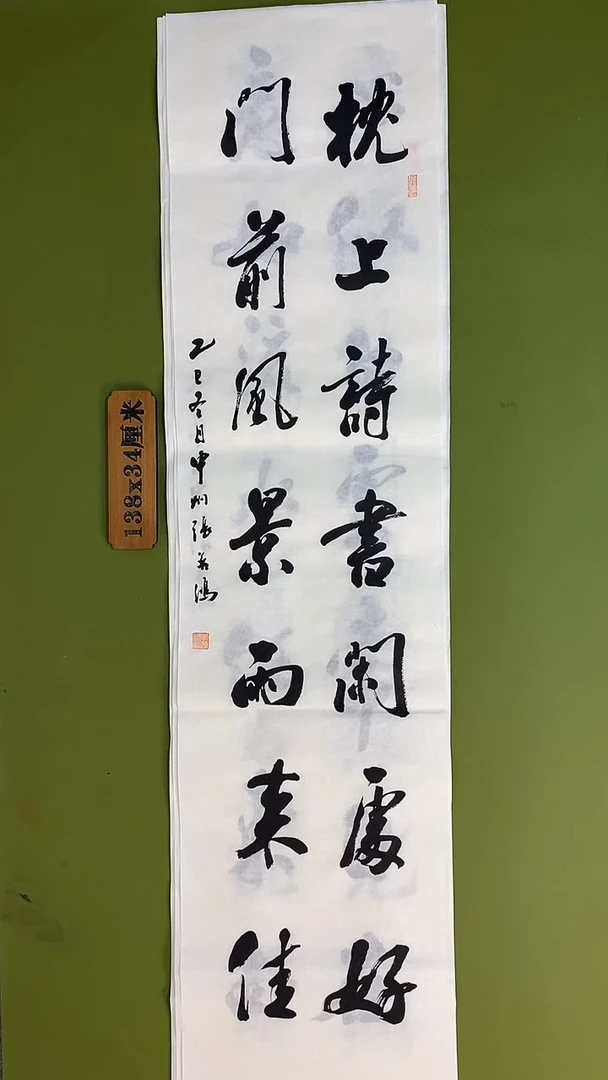 枕上詩書閑處好
門前風景雨來佳
乙巳冬月中州張若鴻
138x34厘米